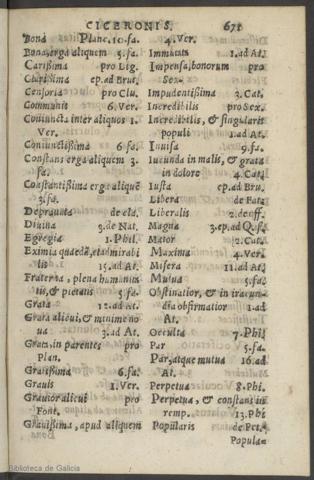 CICERONIS. 671
Bona Planc. 10. fa.
Bona, erga aliquem 5. fa.
Carißima pro Lig.
Clarißima ep. ad Brut.
Censoria pro Clu.
Communis 6. Ver.
Coniuncta inter aliquos 1.
Ver.
Coniunctißima 6 fa.
Constans erga aliquem 3.
fa.
Constantißima erga aliquẽ
3. fa.
Deprauata de cla.
Diuina 3. de Nat.
Egregia 1. Phil.
Eximia quædã, et admirabi
lis 15. ad At.
Fraterna, plena humanita
tis, & pietatis 5. fa.
Grata 12. ad At.
Grata alicui, & minime no
ua 3. ad At.
Grata, in parentes pro
Plan.
Gratißima 6. fa.
Grauis 1. Ver.
Grauior alicui pro
Font.
Grauißima, apud aliquem
4. Ver.
Immutata 1. ad At.
Impensa, bonorum pro
Sex.
Impudentißima 3. Cat.
Incredibilis pro Sex.
Incredibilis, & singularis
populi 1. ad At.
Inuisa 9. fa.
Iucunda in malis, & grata
in dolore 4. Cat.
Iusta ep. ad Bru.
Libera de Fata
Liberalis 2. de off.
Magna 3. ep. ad Q. f.
Maior 2. Cat.
Maxima 4. Ver.
Misera 11. ad At.
Mutua 5. fa.
Obstinatior, & in iracun-
dia obfirmatior 1. ad
At.
Occulta 7. Phil.
Par 5. fa.
Par, atque mutua 16. ad
At.
Perpetua 8. Phi.
Perpetua, & constans in
remp. 13. Phi
Popularis de Pet.
Popula=
Biblioteca de Galicia